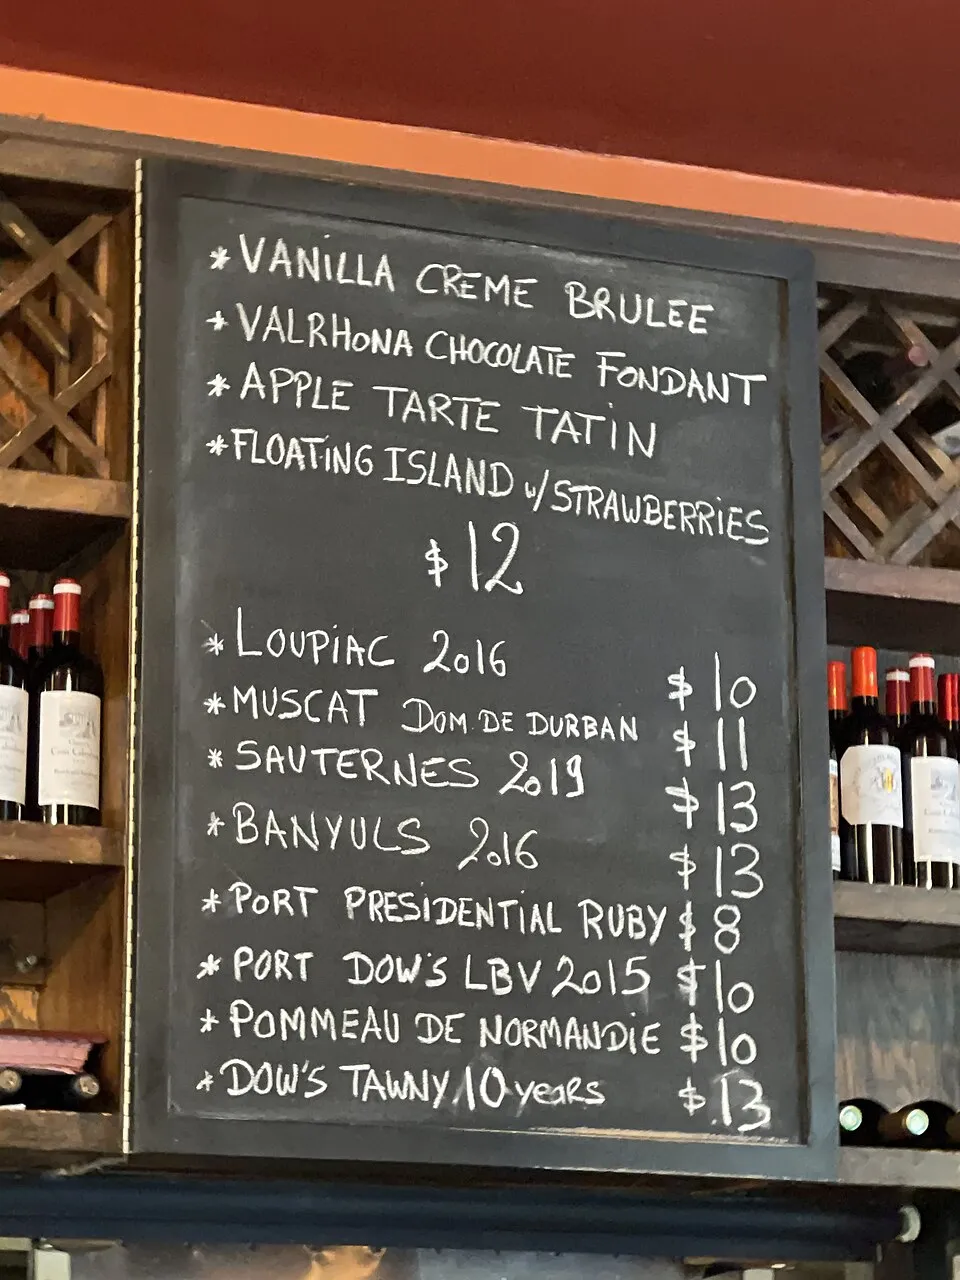 * VANILLA CREME BRULEE
* VALRHONA CHOCOLATE FONDANT
* APPLE TARTE TATIN
* FLOATING ISLAND w/STRAWBERRIES
$12
* LOUPIAC 2016 $10
* MUSCAT DOM. DE DURBAN $11
* SAUTERNES 2019 $13
* BANYULS 2016 $13
* PORT PRESIDENTIAL RUBY $8
* PORT DOW'S LBV 2015 $10
* POMMEAU DE NORMANDIE $10
* DOW'S TAWNY 10 years $13